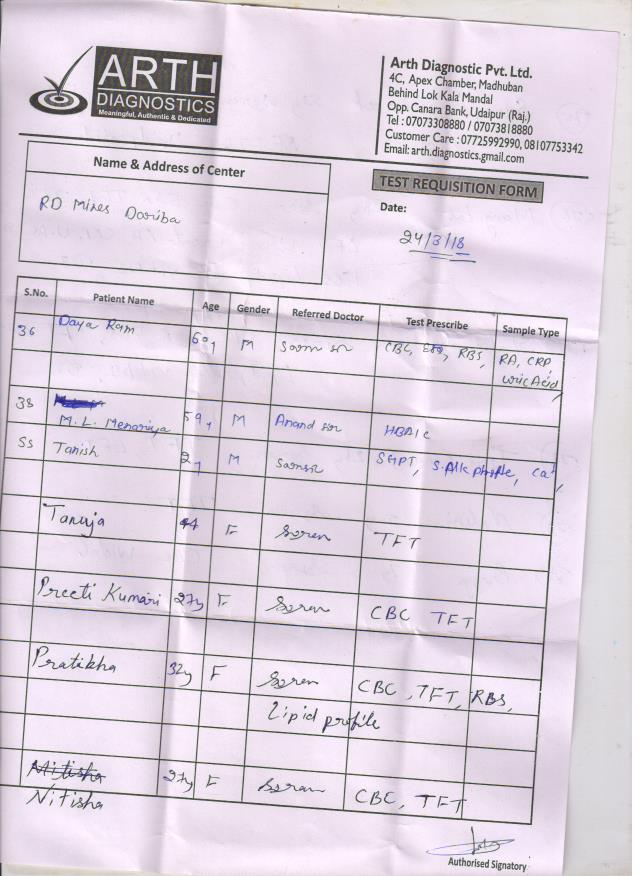 ARTH
DIAGNOSTICS
Meaningful, Authentic & Dedicated
Arth Diagnostic Pvt. Ltd.
4C, Apex Chamber, Madhuban
Behind Lok Kala Mandal
Opp. Canara Bank, Udaipur (Raj.)
Tel : 07073308880 / 07073818880
Customer Care : 07725992990, 08107753342
Email: arth.diagnostics.gmail.com
Name & Address of Center
TEST REQUISITION FORM
RD Mines Dariba
Date:
24/3/18
S.No. Patient Name Age Gender Referred Doctor Test Prescribe Sample Type
36 Daya Ram 60y M CBC, RBS, RA, CRP,
Uric Acid,
38 M.L. Menariya 59y M Anand sir HBA1C
SS Tanish 2y M SGPT, Ca+,
Tanuja F Soren TFT
Preeti Kumari 27y F Soren CBC TFT
Pratikha 32y F Soren CBC, TFT, RBS,
Lipid profile
Mitisha 27y F Soren CBC, TFT
Nitisha
Authorised Signatory